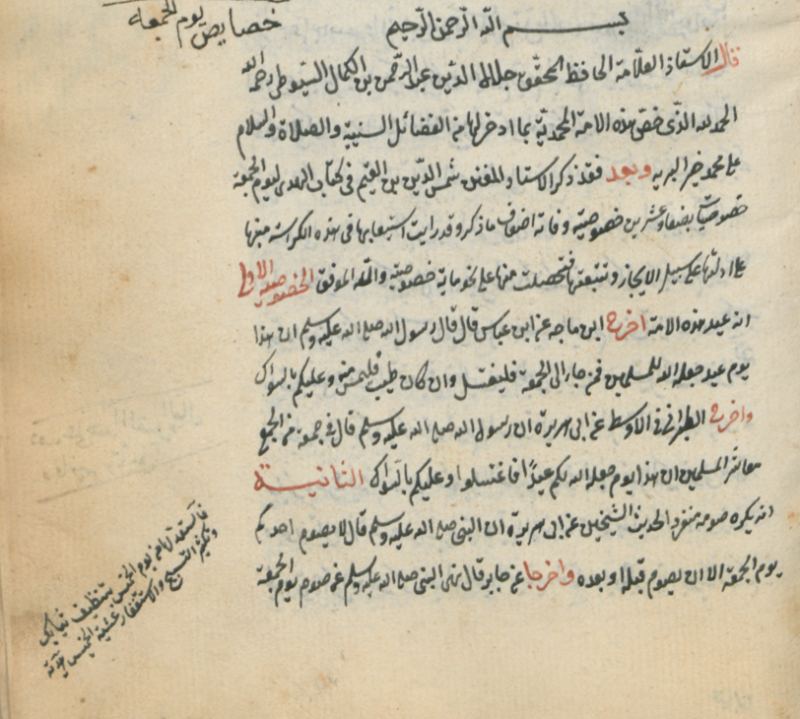 خصايص يوم الجمعه
بسم الله الرحمن الرحيم
قال الاستاذ العلامة الحافظ المحقق جلال الدين عبد الرحمن بن الكمال السيوطي رحمه الله
الحمد لله الذي خص هذه الامة المحمدية بما ادخر لها من الفضائل السنية والصلاة والسلام
على محمد خير البرية وبعد فقد ذكر الاستاد المفنن شمس الدين بن القيم في كتاب الهدى ليوم الجمعة
خصوصيات بضعا وعشرين خصوصية وفاته اضعاف ما ذكر وقد رايت استيعابها في هذه الكراسة منبها
على ادلتها على سبيل الايجاز وتتبعتها فتحصلت منها على نحو ماية خصوصية والله الموفق الخصوصية الاولى
انه عيد هذه الامة اخرج ابن ماجه عن ابن عباس قال قال رسول الله صلى الله عليه وسلم ان هذا
يوم عيد جعله الله للمسلمين فمن جاء الى الجمعة فليغتسل وان كان طيب فليمس منه وعليكم بالسواك
واخرج الطبراني في الاوسط عن ابي هريرة ان رسول الله صلى الله عليه وسلم قال في جمعة من الجمع
معاشر المسلمين ان هذا يوم جعله الله لكم عيدا فاغتسلوا وعليكم بالسواك الثانية
انه يكره صومه منفردا لحديث الشيخين عن ابي هريرة ان النبي صلى الله عليه وسلم قال لا يصوم احدكم
يوم الجمعة الا ان يصوم قبله او بعده واخرجا عن جابر قال نهى النبي صلى الله عليه وسلم عن صوم يوم الجمعة
فاستعد لها من يوم الخميس بتنظيف ثيابك
وبكثرة التسبيح والاستغفار عشية الخميس